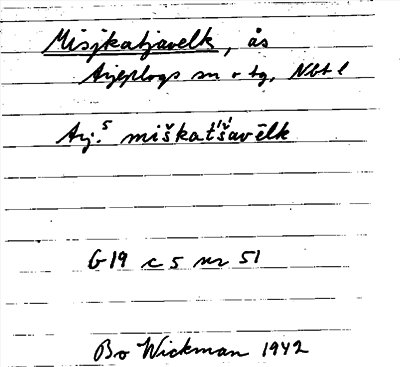 Misjkatjavelk, ås
Arjeplogs sn o tg, Nbt l
Arj.⁵ miškat́šavēlk
G19 c 5 nr 51
Bo Wickman 1942